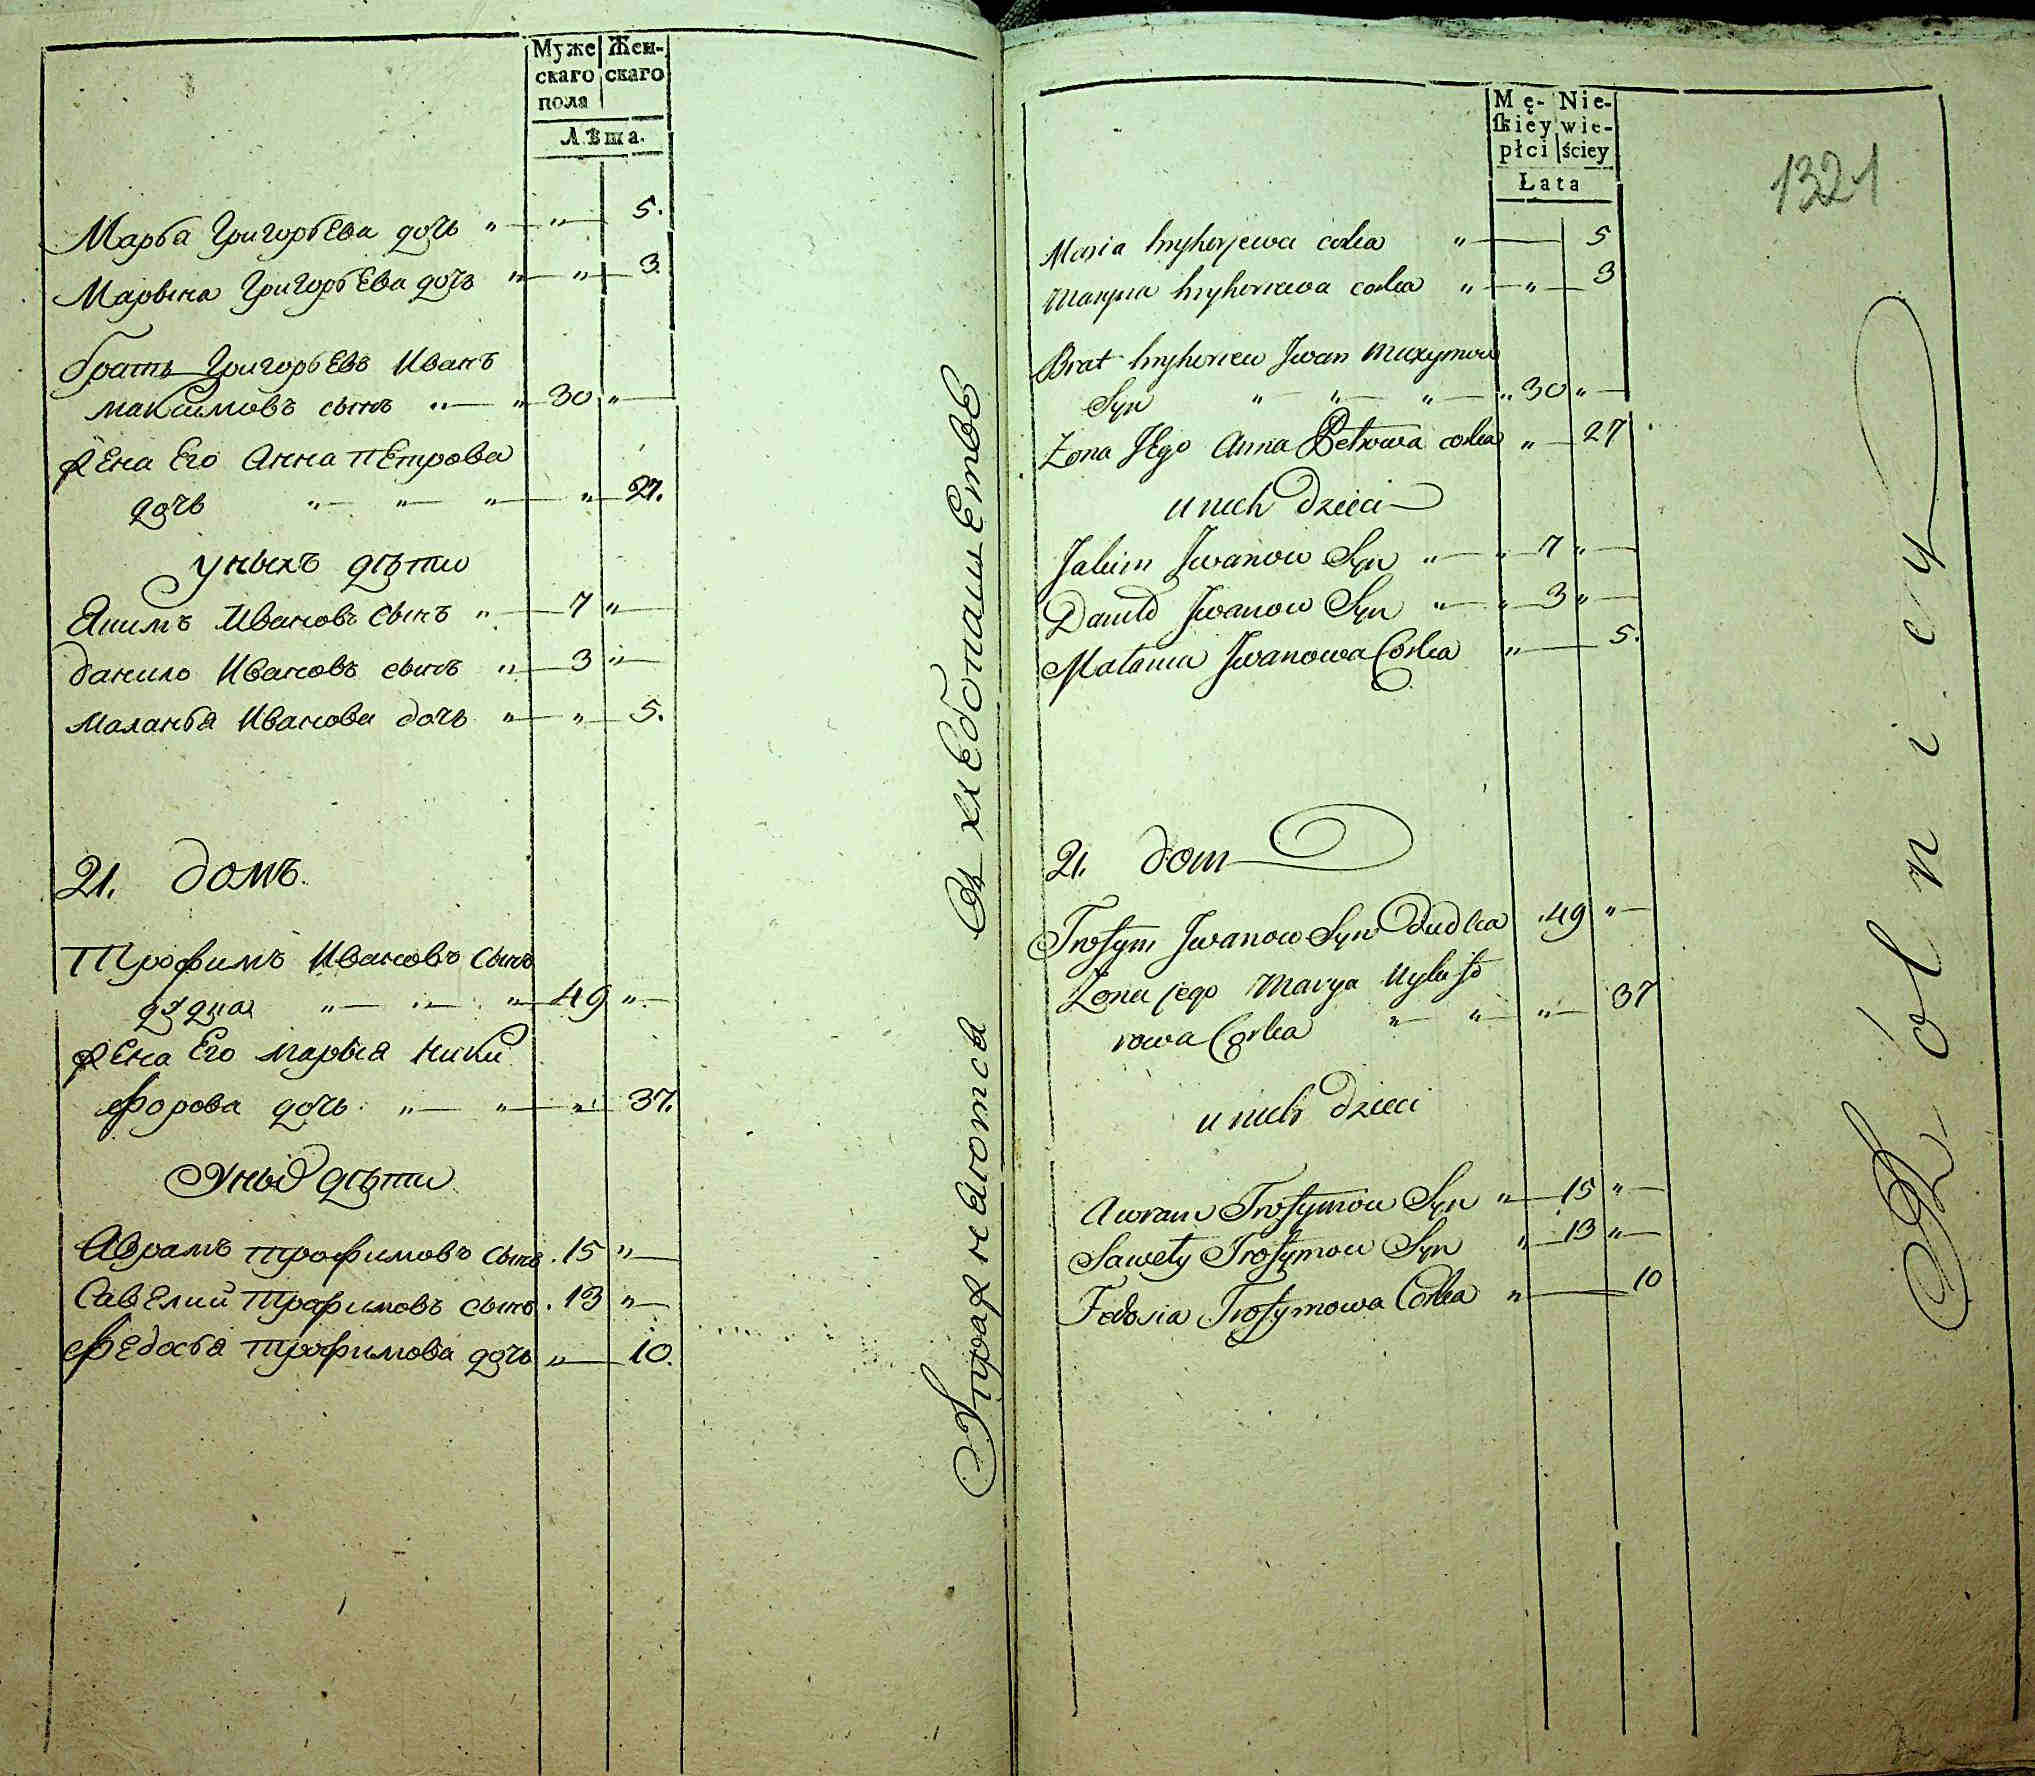 Муже Жен-
скаго скаго
пола
Лѣта.
Марья Григорьева дочь " — " — 5.
Марьяна Григорьева дочь " — " — 3.
братъ Григорьевъ Иванъ
максимовъ сынъ " — " 30 " —
жена Его Анна пЕтрова
дочь " — " — " — " 27.
уныхъ дѣти
Якимъ Ивановъ сынъ " — 7 " —
данило Ивановъ сынъ " — 3 " —
маланья Иванова дочь " — " — 5.
21. домъ.
Трофимъ Ивановъ сынъ
дудка " — " — " — 49 " —
жена Его марья ники
форова дочь " — " — " — 37.
уных дѣти
Аврамъ трофимовъ сынъ . 15 " —
Савелий трофимовъ сынъ . 13 " —
федосья трофимова дочь " — 10.
Упражняютса въ хлЕбопашЕствЕ
Mę- Nie-
skiey wie-
płci ściey
Łata
1321
Maria hryhorjewa corka " — 5
Maryna hryhoriewa corka " — " — 3
Brat hryhoriew Jwan Maxymow
Syn " — " — " — " 30 " —
Zona JEgo Anna Petrowa corka " — 27
u nich dzieci
Jakim Jwanow Syn " — " 7 " —
Daniło Jwanow Syn " — " 3 " —
Małania Jwanowa Corka " — 5.
21. dom
Trofym Jwanow Syn Dudka . 49 " —
Zona jego Marya Nykifo
rowa Corka " — " — " — 37
u nich dzieci
Awram Trofymow Syn " — 15 " —
Sawely Trofymow Syn " — 13 " —
Fedosia Trofymowa Corka " — 10
Rólnicy